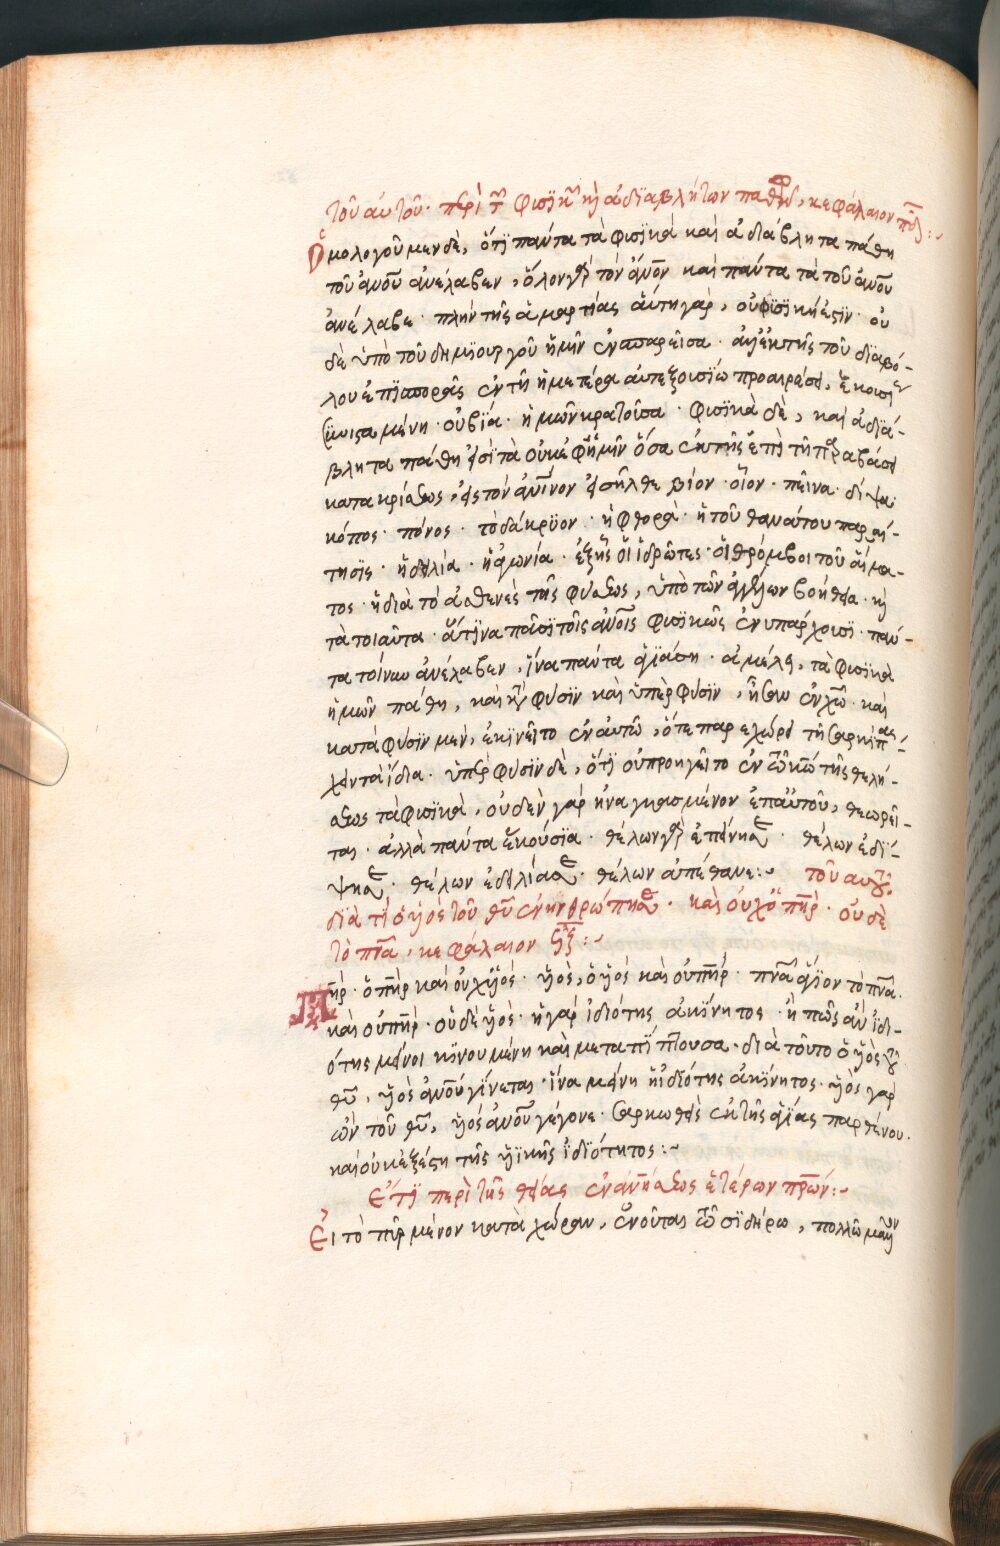 τοῦ αὐτοῦ· περὶ τ̃ φισικ̃ κ̀ ἀδϊαβλήτων παθῶν, κεφάλαιον
Ὁμολογοῦμεν δὲ, ὅτϊ πάντα τὰ φισϊκὰ καὶ ἀδιάβλητα πάθη
τοῦ ἀνοῦ ἀνέλαβεν, ὅλον γὰρ τὸν ἄνον καὶ πάντα τὰ τοῦ ἀνοῦ
ἀνέλαβε· πλὴν τῆς ἁμαρτίας αὕτη γάρ, οὐ φισϊκή ἐςϊν· οὐ
δὲ ὑπὸ τοῦ δημϊουργοῦ ἡμῖν ἐνσπαρεῖσα· ἀλλ' ἐκ τῆς τοῦ δϊαβό-
λου ἐπϊσπορᾶς ἐν τῆ ἡμετέρα αὐτεξοισϊω προαιρέσει, ἑκοισί
ως συνισταμένη· οὐ βϊία· ἡμῶν κρατοῦσα· φισϊκὰ δὲ, καὶ ἀδϊά-
βλητα πάθη εἰσὶ τὰ οὐκ ἐφ' ἡμῖν ὅσα ἐκ τῆς ἐπὶ τῆ παραβάσει
κατακρίσεως, εἰς τὸν ἀνϊνον εἰσῆλθε βίον· οἷον· πεῖνα· δίψα
κόπος· πόνος· τὸ δάκρϋον· ἡ φθορὰ· ἡ τοῦ θανάτου παραί-
τησϊς· ἡ δειλία· ἡ ἀγωνία· ἐξ ἧς οἱ ἱδρῶτες· οἱ θρόμβοι τοῦ αἵμα-
τος· ἡ διὰ τὸ ἀσθενὲς τῆς φύσεως, ὑπὸ τῶν ἀγγέλων βοήθεια· κ̀
τὰ τοιαῦτα· ἅτϊνα πᾶσϊ τοῖς ἀνοις φισϊκῶς ἐνυπάρχουσϊ· πάν-
τα τοίνυν ἀνέλαβεν, ἵνα πάντα ἁγϊάση· ἀμέλει, τὰ φισϊκὰ
ἡμῶν πάθη, καὶ κατὰ φύσϊν καὶ ὑπὲρ φύσϊν, ἦσαν ἐν χῶ· καὶ
κατὰ φύσϊν μὲν, ἐκϊνεῖτο ἐν αὐτῶ, ὅτε παρεχώρει τῆ σαρκὶ πά-
σχειν τὰ ἴδια· ὑπὲρ φύσϊν δὲ, ὅτϊ οὐ προηγεῖτο ἐν τῶ κῶ τῆς θελή-
σεως τὰ φισϊκὰ, οὐδὲν γὰρ ἠναγκασμένον ἐπ' αὐτοῦ, θεωρεῖ-
ται· ἀλλὰ πάντα ἑκούσϊα· θέλων γὰρ ἐπείνησε· θέλων ἐδϊ-
ψησε· θέλων ἐδειλίασε· θέλων ἀπέθανε:~ τοῦ αὐτοῦ·
διὰ τί ὁ ὑιὸς τοῦ θῦ ἐνηνθρώπησε· καὶ οὐχ ὁ πὴρ· οὐδὲ
τὸ πνα, κεφάλαιον :~
Πὴρ· ὁ πὴρ καὶ οὐχ ὑϊὸς· ὑϊὸς, ὁ ὑϊὸς καὶ οὐ πὴρ· πνα ἅγϊον τὸ πνα·
καὶ οὐ πὴρ· οὐδὲ ὑϊὸς· ἡ γὰρ ἰδιότης ἀκϊνητος· ἢ πῶς ἂν ἰδι-
ότης μένοι κϊνουμένη καὶ μεταπϊπτουσα· διὰ τοῦτο ὁ ὑϊὸς τοῦ
θῦ, ὑϊὸς ἀνοῦ γίνεται· ἵνα μείνη ἡ ἰδϊότης ἀκϊνητος· ὑϊὸς γὰρ
ὢν τοῦ θῦ, ὑϊὸς ἀνοῦ γέγονε· σαρκωθεὶς ἐκ τῆς ἁγίας παρθένου·
καὶ οὐκ ἐξέςη τῆς ὑϊκῆς ἰδϊότητος:~
Ἔτϊ περὶ τῆς θείας ἐνανήσεως ἑτέρων πρῶν:~
Εἰ τὸ πῦρ μένον κατὰ χώραν, ἑνοῦται τῶ σϊδήρω, πολλῶ μᾶλλον